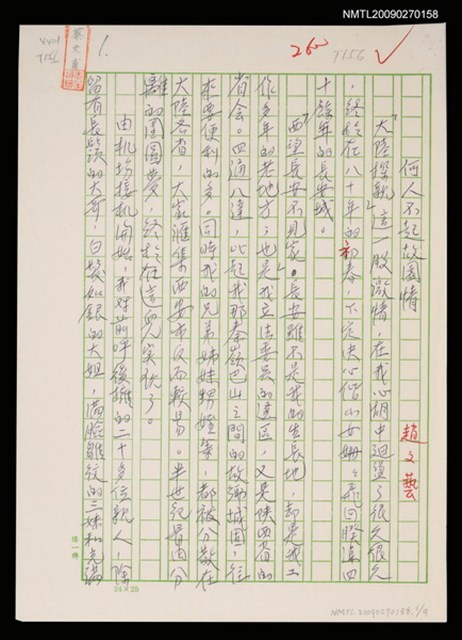 NMTL20090270158
1.
260
T156
何人不起故園情
趙文藝
「大陸探親」這一股激情,在我心胸中迴盪了很久很久
,終於在八十年的初春,下定決心偕小女姍姍飛回暌違四
十餘年的長安城。
「西望長安不見家」。長安雖不是我的生長地,却是我工
作多年的老地方;也是我立法委員的選區,又是陝西省的
省会。四通八達,比起我那秦嶺巴山之間的故鄉城固,往
來要便利的多。同時我的兄弟姊妹甥姪等,都被分散在
大陸各省,大家滙集西安市反而較易。半世紀骨肉分
離的團圓夢,終於在這兒実現了。
由机场接机開始,我对前呼後擁的二十多位親人,除
留有長鬍的大哥,白髮如銀的大姐,滿臉皺紋的三妹和充滿
24×25
NMTL20090270158. 1/9